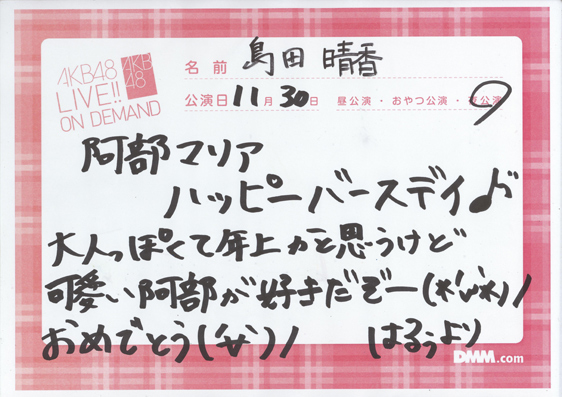 AKB48
LIVE!!
ON DEMAND
AKB
48
名前 島田晴香
公演日 11月30日 昼公演・おやつ公演・夜公演
阿部マリア
ハッピーバースデイ♪
大人っぽくて年上かと思うけど
可愛い阿部が好きだぞー(*'ω'*)ノ
おめでとう('∀')ノ
はるぅより
DMM.com